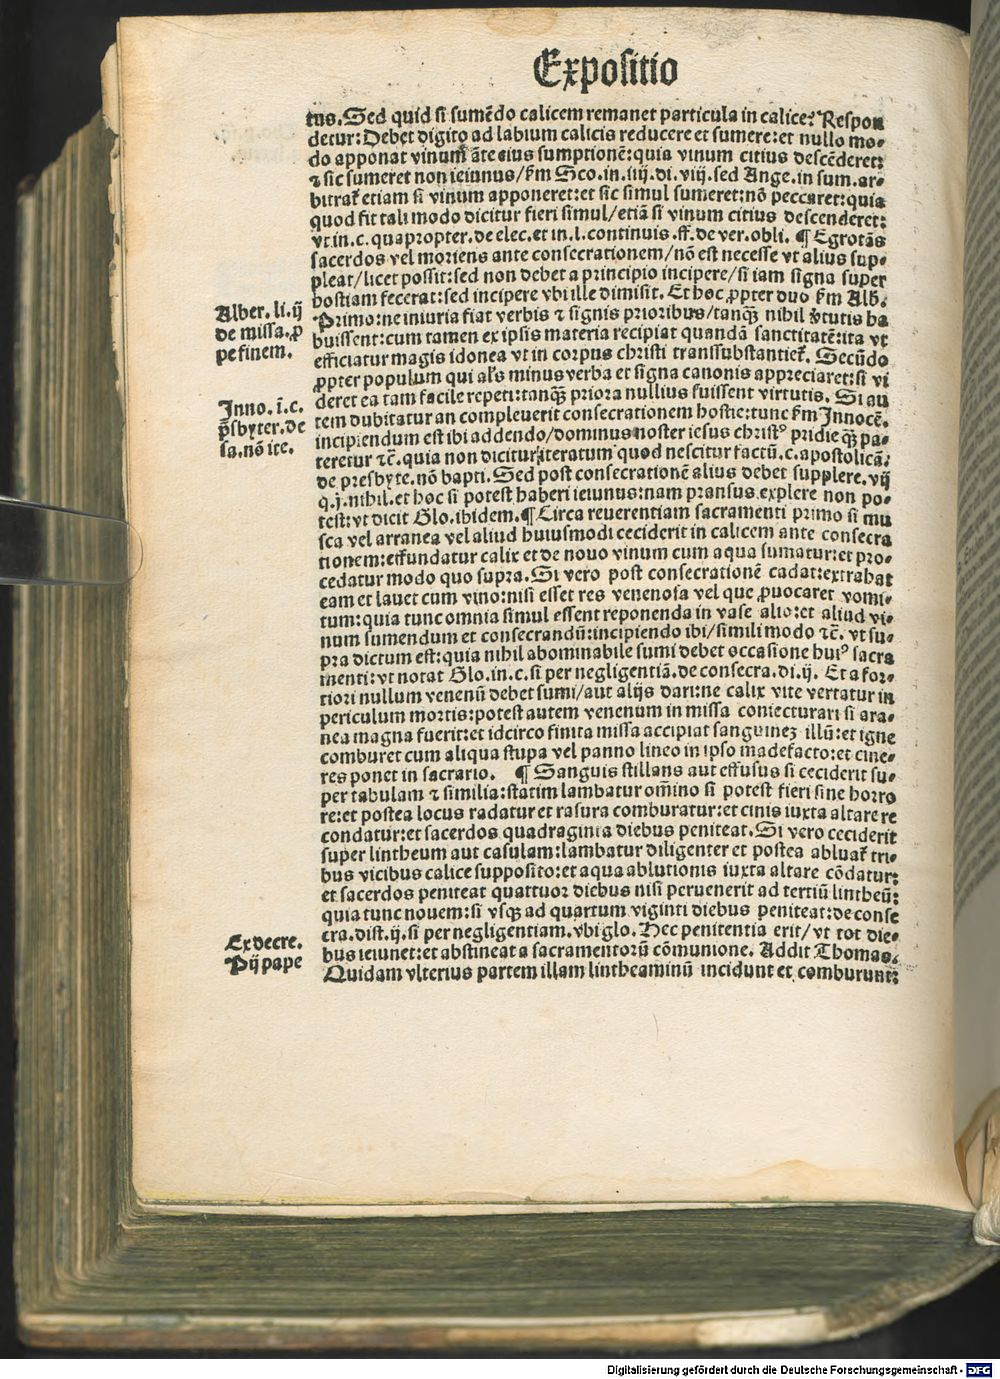 Expositio
tus. Sed quid si sumēdo calicem remanet particula in calice? Respon
detur: Debet digito ad labium calicis reducere et sumere: et nullo mo-
do apponat vinum āte eius sumptionē: quia vinum citius descēderet:
⁊ sic sumeret non ieiunus/ſm Sco. in .iiij. di. viij. sed Ange. in sum. ar-
bitrat̄ etiam si vinum apponeret: et sic simul sumeret: nō peccaret: quia
quod fit tali modo dicitur fieri simul/etiā si vinum citius descenderet:
vt in .c. quapropter. de elec. et in .l. continuis .ff. de ver. obli. ¶ Egrotās
sacerdos vel moriens ante consecrationem/nō est necesse vt alius sup-
pleat/licet possit: sed non debet a principio incipere/si iam signa super
hostiam fecerat: sed incipere vbi ille dimisit. Et hoc ꝓpter duo ſm Alb.
Alber. li. ij
de missa. ꝓ
pe finem.
Primo: ne iniuria fiat verbis ⁊ signis prioribus/tanqȝ nihil v̄tutis ha
buissent: cum tamen ex ipsis materia recipiat quandā sanctitatē: ita vt
efficiatur magis idonea vt in corpus christi transsubstantiet̄. Secūdo
ꝓpter populum qui al's minus verba et signa canonis appreciaret: si vi
deret ea tam facile repeti: tanqȝ priora nullius fuissent virtutis. Si au
Inno. ī. c.
p̄sbyter. de
sa. nō ite.
tem dubitatur an compleuerit consecrationem hostie: tunc ſm Innocē.
incipiendum est ibi addendo/dominus noster iesus christꝰ pridie qȝ pa-
teretur ⁊c. quia non dicitur iteratum quod nescitur factū. c. apostolicā.
de presbyte. nō bapti. Sed post consecrationē alius debet supplere. vij
q. j. nihil. et hoc si potest haberi ieiunus: nam pransus explere non po-
test: vt dicit Glo. ibidem. ¶ Circa reuerentiam sacramenti primo si mu
sca vel arranea vel aliud huiusmodi ceciderit in calicem ante consecra
tionem: effundatur calix et de nouo vinum cum aqua sumatur: et pro-
cedatur modo quo supra. Si vero post consecrationē cadat: extrahat
eam et lauet cum vino: nisi esset res venenosa vel que ꝓuocaret vomi-
tum: quia tunc omnia simul essent reponenda in vase alio: et aliud vi-
num sumendum et consecrandū: incipiendo ibi/simili modo ⁊c. vt su-
pra dictum est: quia nihil abominabile sumi debet occasione huiꝰ sacra
menti: vt notat Glo. in .c. si per negligentiā. de consecra. di. ij. Et a for-
tiori nullum venenū debet sumi/aut alijs dari: ne calix vite vertatur in
periculum mortis: potest autem venenum in missa coniecturari si ara-
nea magna fuerit: et idcirco finita missa accipiat sanguinez illū: et igne
comburet cum aliqua stupa vel panno lineo in ipso madefacto: et cine-
res ponet in sacrario. ¶ Sanguis stillans aut effusus si ceciderit su-
per tabulam ⁊ similia: statim lambatur om̄ino si potest fieri sine horro
re: et postea locus radatur et rasura comburatur: et cinis iuxta altare re
condatur: et sacerdos quadraginta diebus peniteat. Si vero ceciderit
super lintheum aut casulam: lambatur diligenter et postea abluat̄ tri-
bus vicibus calice supposito: et aqua ablutionis iuxta altare cōdatur:
et sacerdos peniteat quattuor diebus nisi peruenerit ad tertiū lintheū:
quia tunc nouem: si vsqȝ ad quartum viginti diebus peniteat: de conse
cra. dist. ij. si per negligentiam. vbi glo. Hec penitentia erit/vt tot die-
Ex decre.
Pij pape
bus ieiunet: et abstineat a sacramentorū cōmunione. Addit Thomas.
Quidam vlterius partem illam lintheaminū incidunt et comburunt:
Digitalisierung gefördert durch die Deutsche Forschungsgemeinschaft - DFG